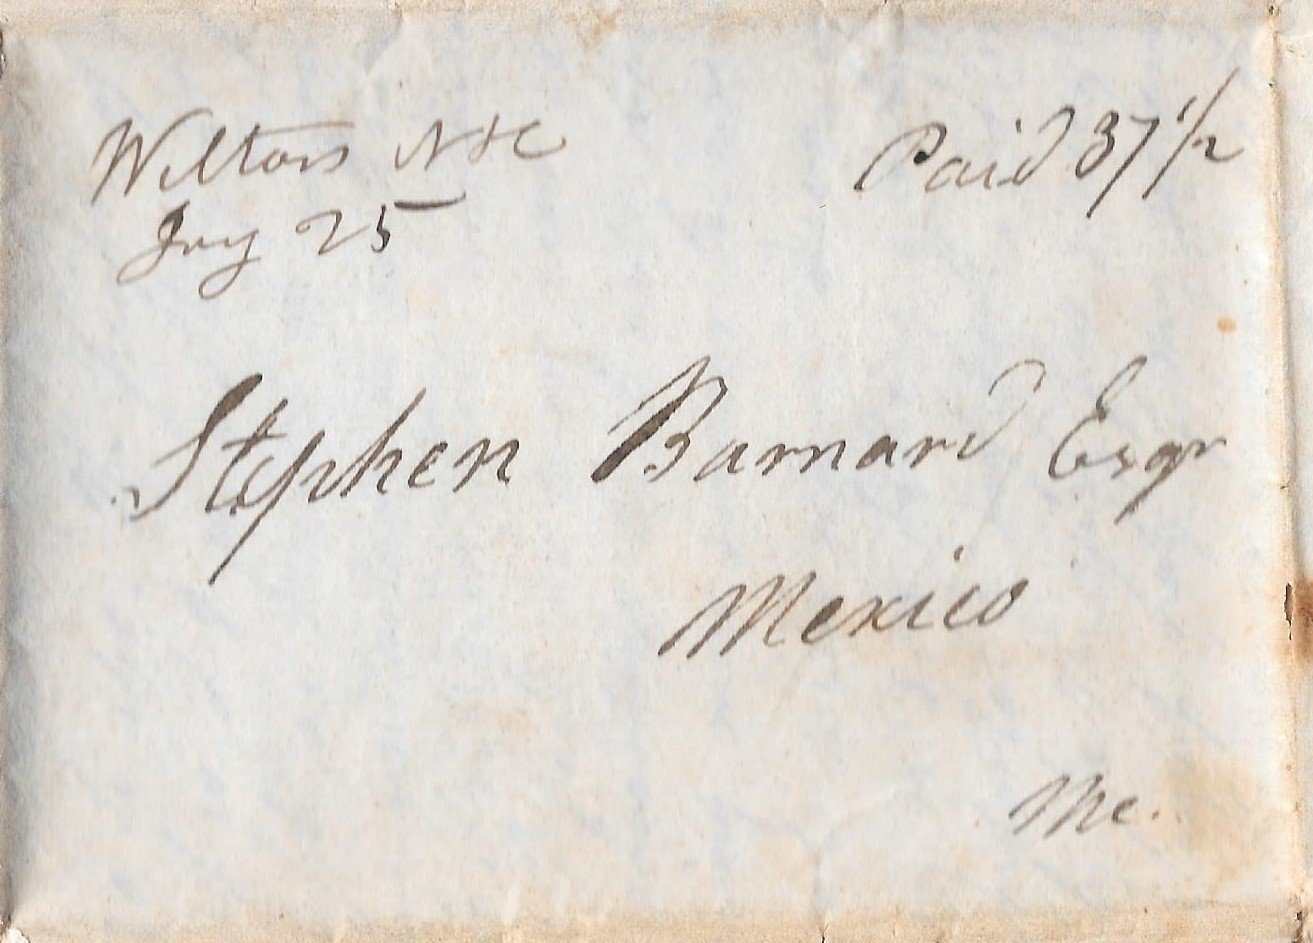 Wilton NH Paid 37 1/2
Jny 25
Stephen Barnard Esqr
Mexico
Me.